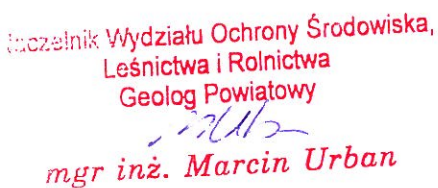 Naczelnik Wydziału Ochrony Środowiska,
Leśnictwa i Rolnictwa
Geolog Powiatowy
mgr inż. Marcin Urban